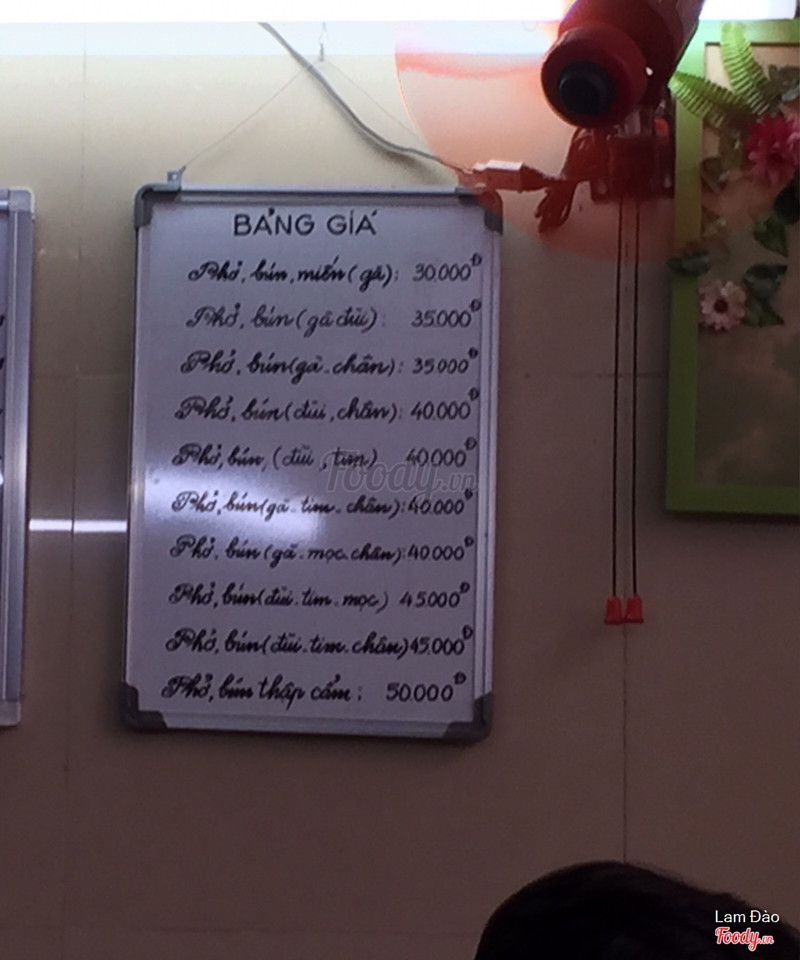 BẢNG GIÁ
Phở, bún, miến (gà): 30.000Đ
Phở, bún (gà đùi): 35.000Đ
Phở, bún (gà - chân): 35.000Đ
Phở, bún (đùi, chân): 40.000Đ
Phở, bún, (đùi, tim) 40.000Đ
Phở, bún (gà - tim - chân): 40.000Đ
Phở, bún (gà - mọc - chân): 40.000Đ
Phở, bún (đùi - tim - mọc) 45.000Đ
Phở, bún (đùi - tim - chân) 45.000Đ
Phở, bún thập cẩm: 50.000Đ
Foody.vn
Lam Đào
Foody.vn